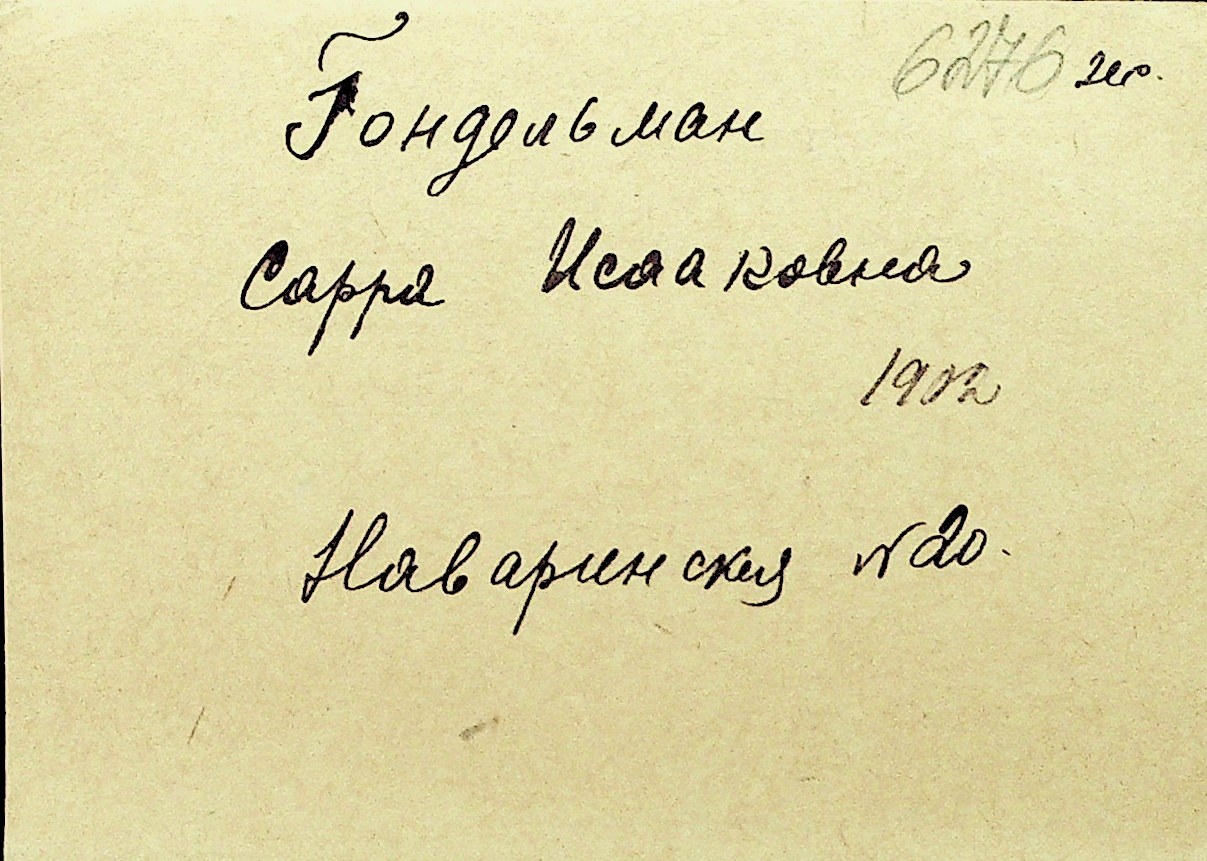 6276
Гондельман
Сарра Исааковна
1902
Наваринская №20.